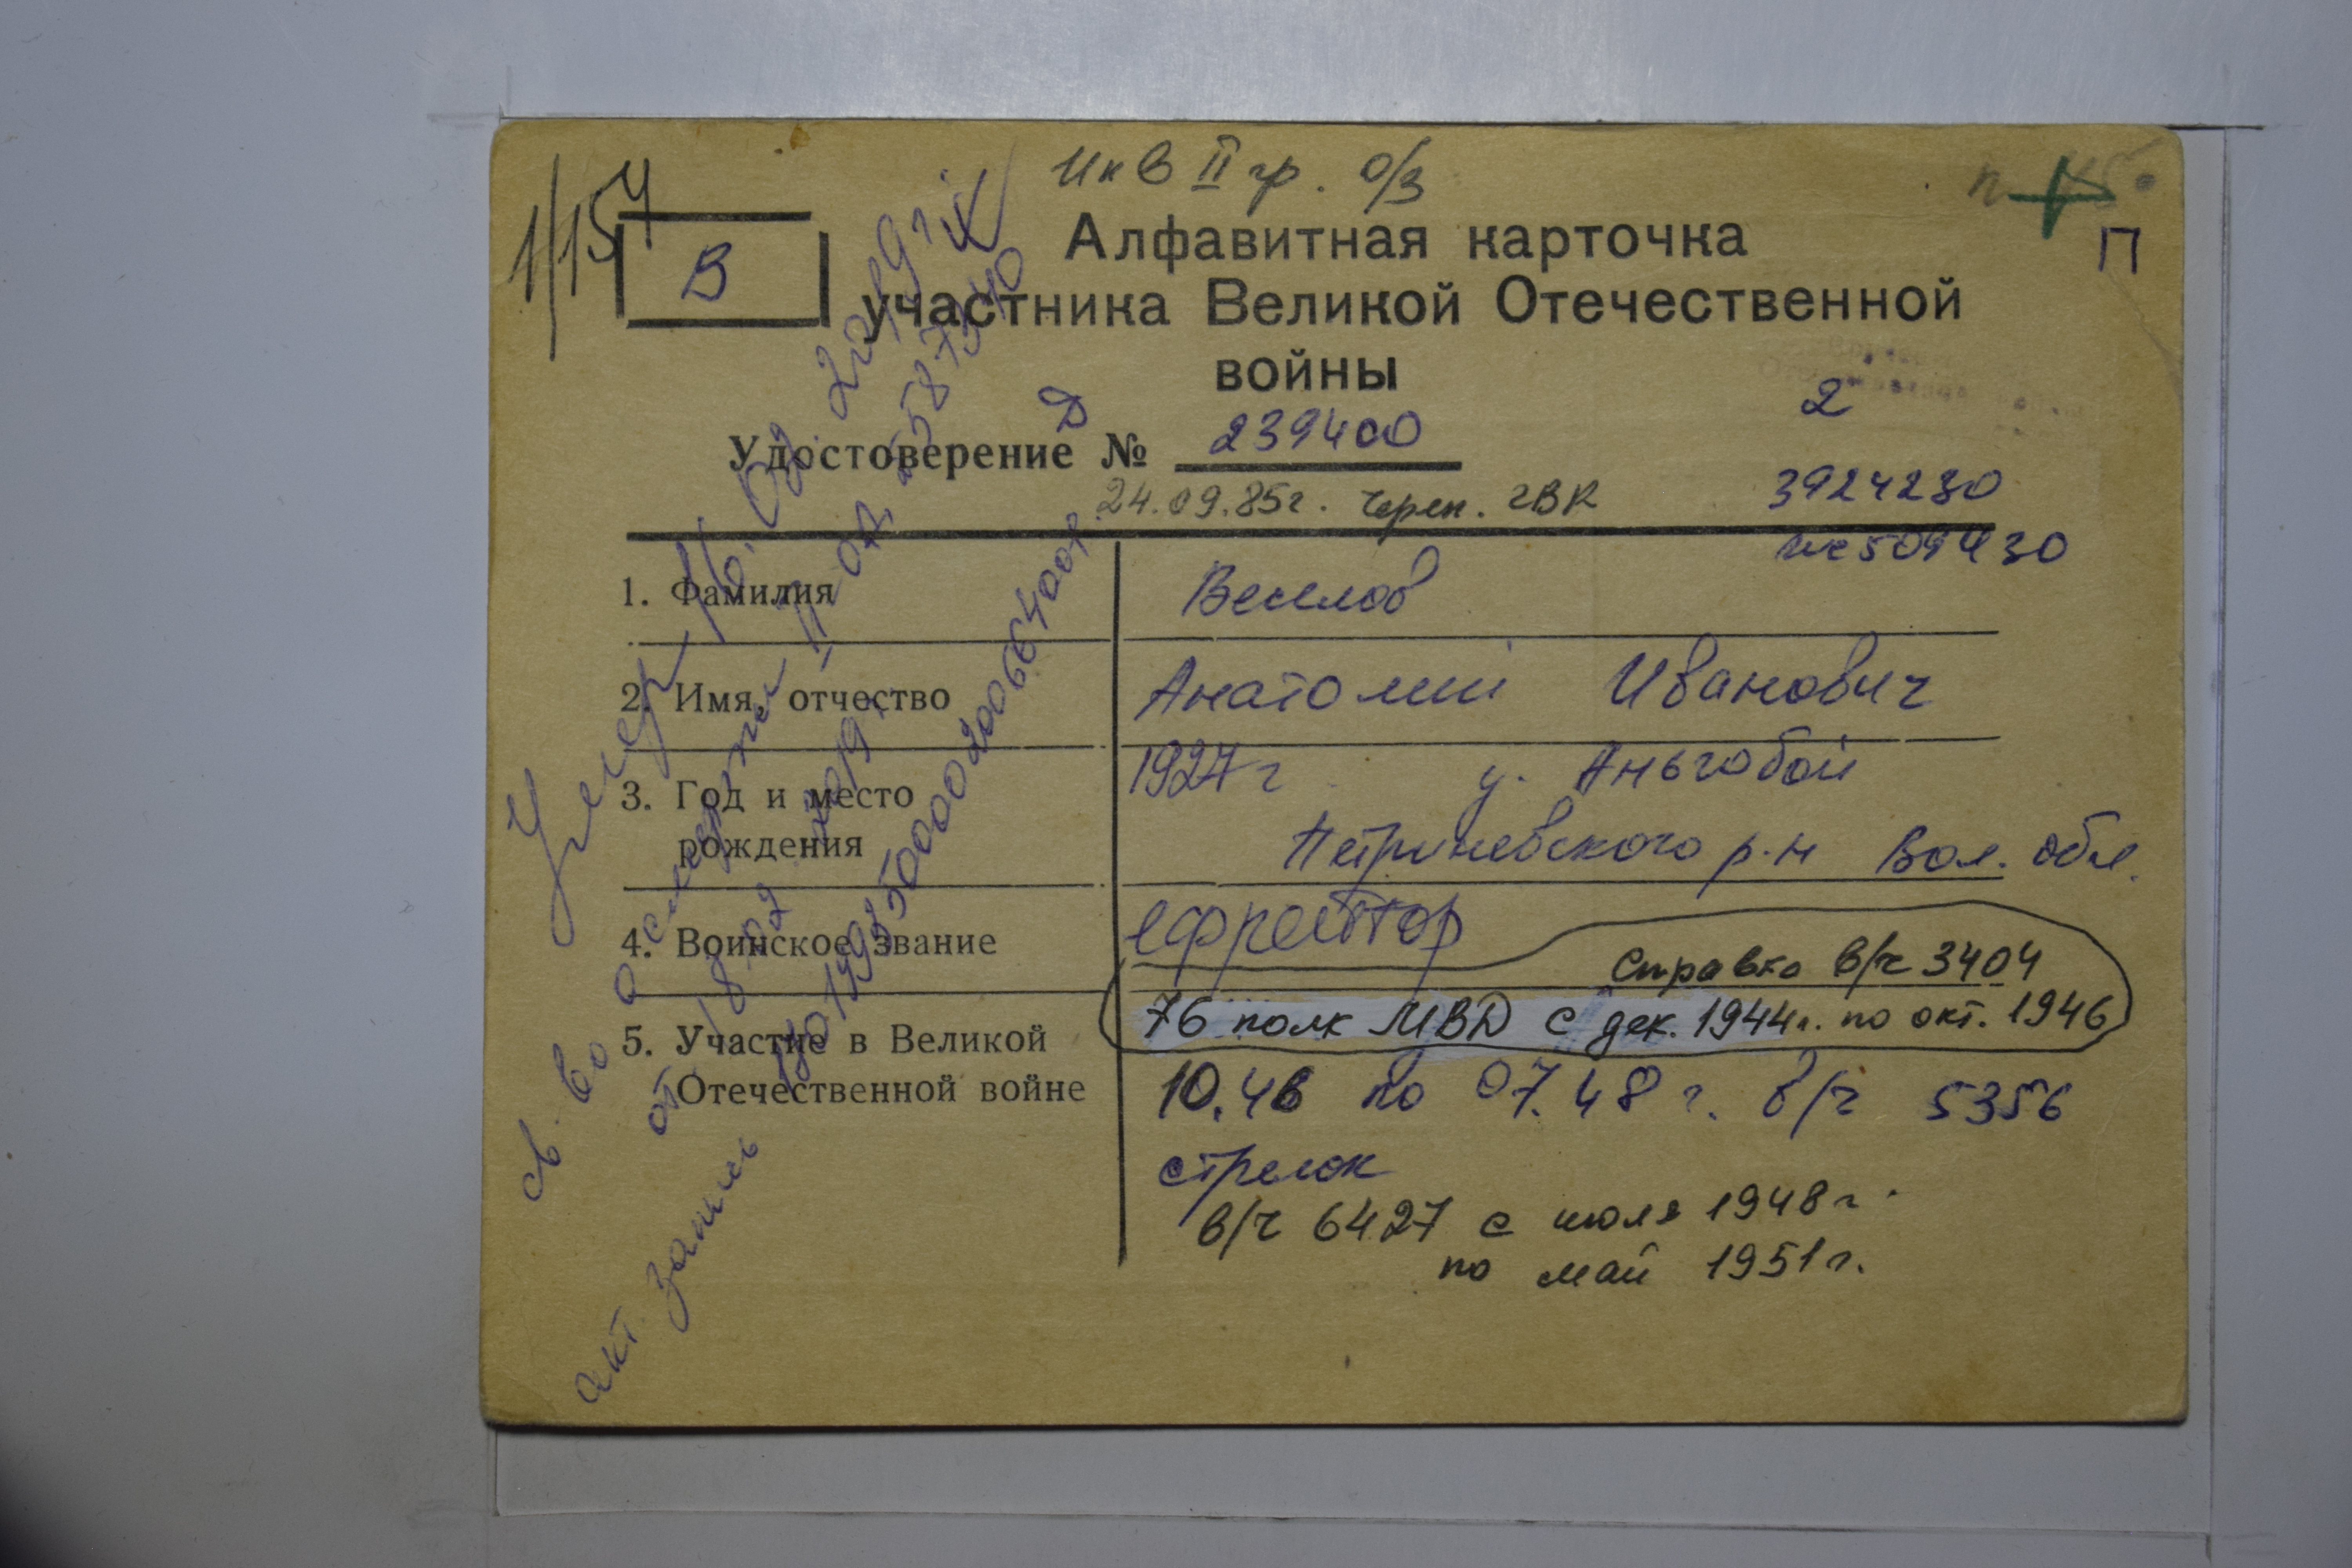 Инв II гр. о/з
1/154
В
П
Алфавитная карточка
участника Великой Отечественной
войны
2
Удостоверение Д № 239400
24.09.85г. Череп. ГВК
3924230
509430
1. Фамилия
Веселов
2. Имя, отчество
Анатолий Иванович
3. Год и место
рождения
1927 г у. Аньгобой
Петриневского р-н Вол. обл.
4. Воинское звание
ефрейтор
5. Участие в Великой
Отечественной войне
Справка в/ч 3404
76 полк МВД с дек. 1944г. по окт. 1946
10.46 по 07.48 г. в/ч 5356
стрелок
в/ч 6427 с июля 1948г.
по май 1951г.
Умер 16.02.2019г.
св-во о смерти II-ОД 587340
от 18.02.2019г.
акт. запись